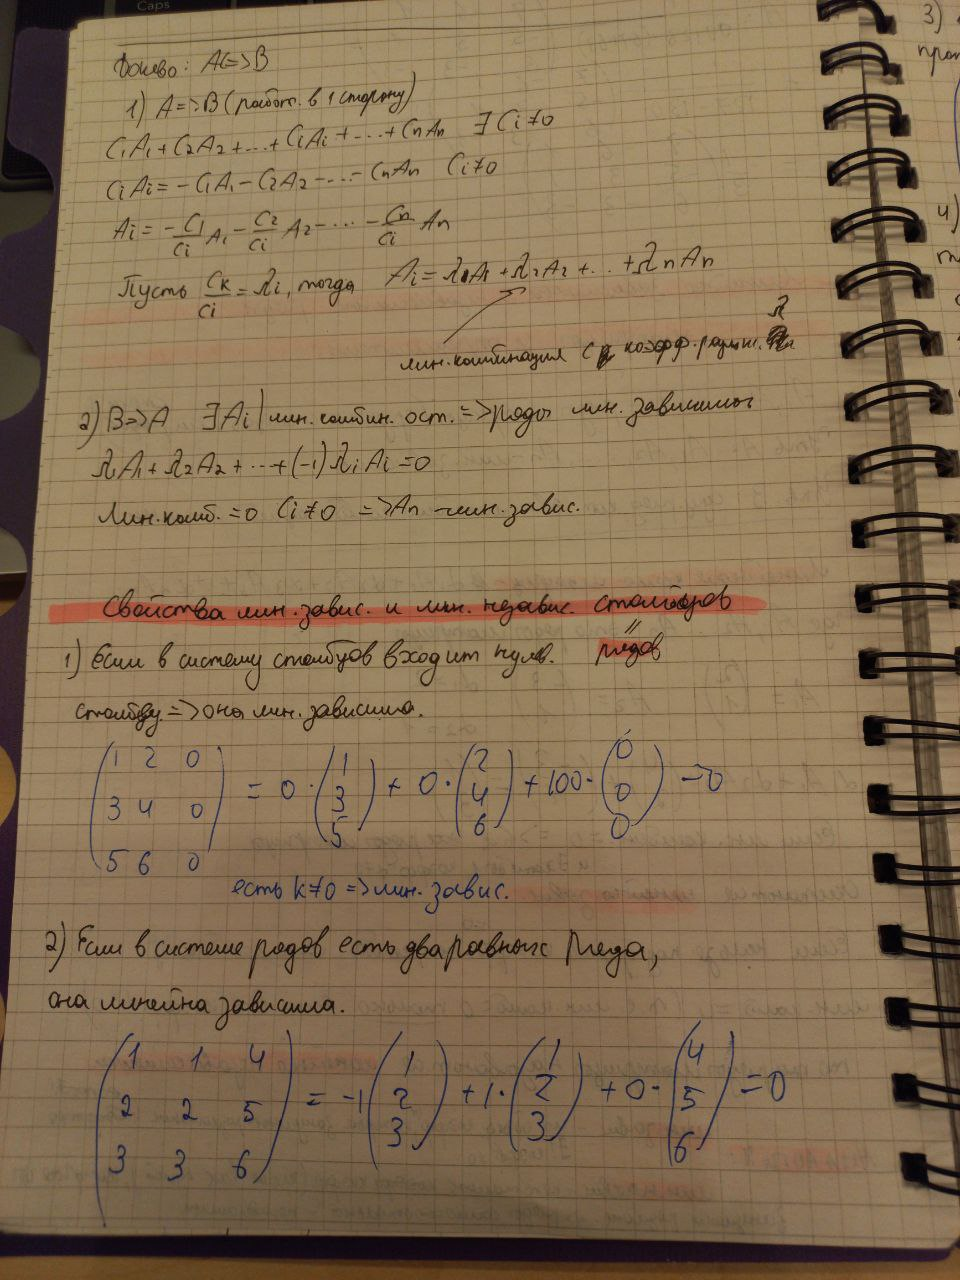 Caps
Док-во: A<=>B
1) A=>B (работ. в 1 сторону)
C₁A₁+C₂A₂+...+CᵢAᵢ+...+CₙAₙ ∃Cᵢ≠0
CᵢAᵢ=-C₁A₁-C₂A₂-...-CₙAₙ Cᵢ≠0
Aᵢ=-C₁/Cᵢ A₁-C₂/Cᵢ A₂-...-Cₙ/Cᵢ Aₙ
Пусть Cₖ/Cᵢ=λᵢ, тогда Aᵢ=λ₁A₁+λ₂A₂+...+λₙAₙ
лин.комбинация с коэфф. λ
2) B=>A ∃Aᵢ | лин.комбин. ост.=>ряды лин. зависимы
λA₁+λ₂A₂+...+(-1)λᵢAᵢ=0
Лин.комб.=0 Cᵢ≠0 =>Aₙ -лин.завис.
Свойства лин.завис. и лин. независ. столбцов
"
рядов
1) Если в систему столбцов входит нулев.
столбец.=>она лин.зависима.
(1 2 0
3 4 0
5 6 0) = 0·(1 3 5) + 0·(2 4 6) + 100·(0 0 0) =0
есть k≠0=>лин.завис.
2) Если в системе рядов есть два равных ряда,
она линейна зависима.
(1 1 4
2 2 5
3 3 6) = -1(1 2 3) +1·(1 2 3) +0·(4 5 6) =0
3)
4)